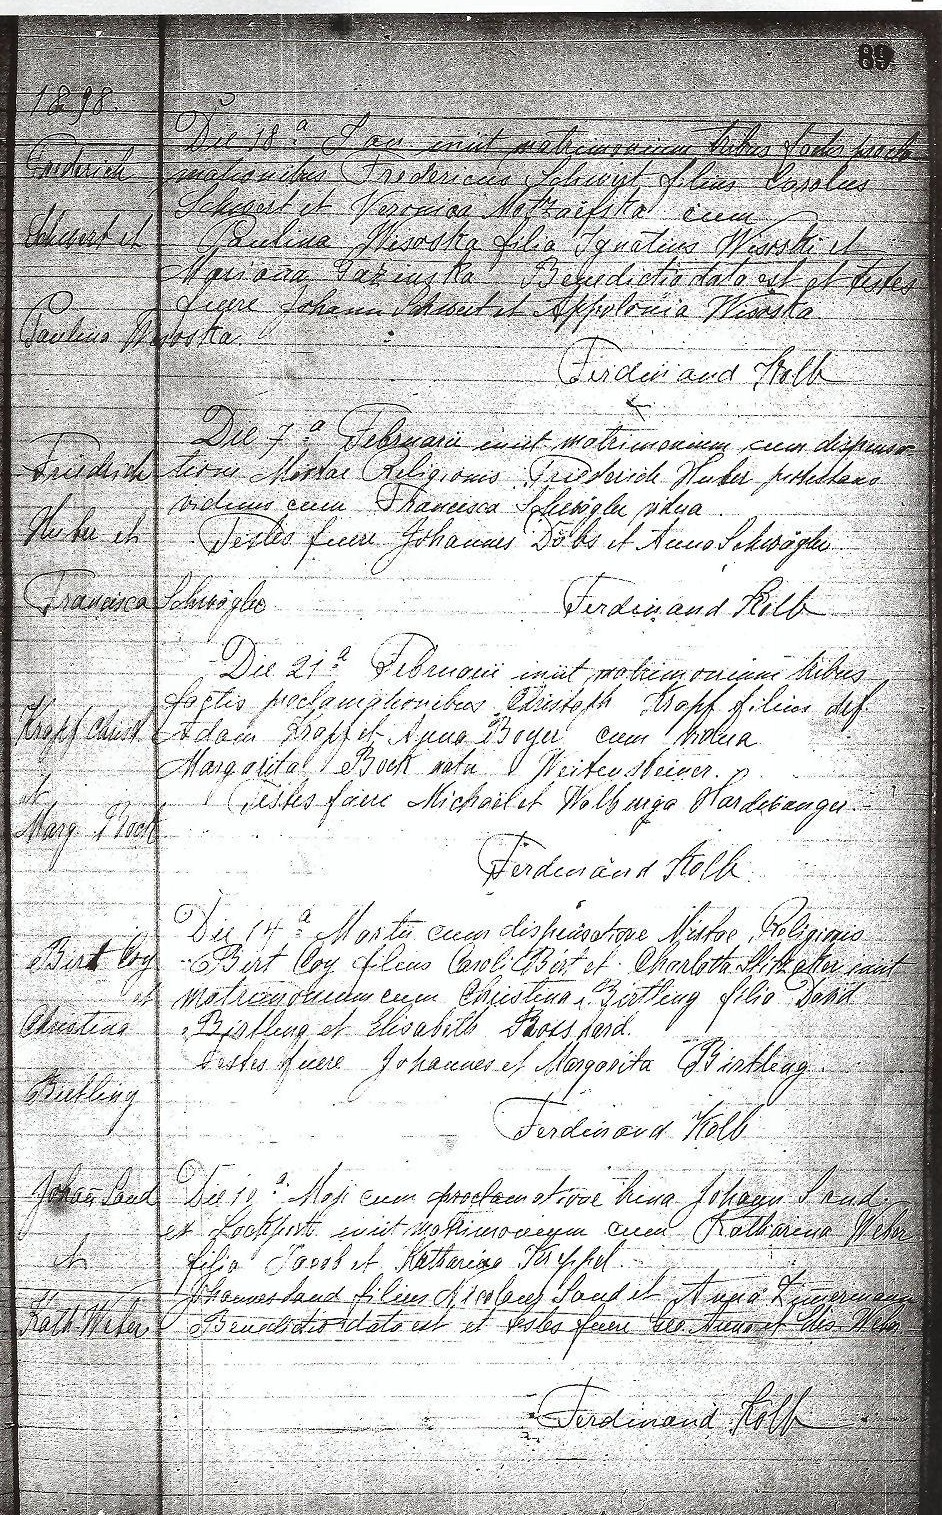 89
1898.
Die 18.a Jan iniit matrimonium tribus factis procla
Frederich mationibus Fredericus Schwert filius Carolus
Schwert et Veronica
cum
Schwert et Paulina Wisoska filia Ignatius Wisoski et
Mariana Benedictio data est et testes
fuere Johann Schwert et Appolonia Wisoska
Paulina Wisoska
Ferdinand Kolb
Die 7.a Februarii iniit matrimonium cum dispensa-
Friedrich tione Mixtae Religionis Friederich Huber protestans
viduus cum Francisca Schwögler vidua.
Huber et Testes fuere Johannes Dobs et Anna Schwögler.
Francisca Schwögler
Ferdinand Kolb
Die 21.a Februarii iniit matrimonium tribus
factis proclamationibus Christoph Kropf filius def.
Kropf Christ Adam Kropf et Anna Boyer cum vidua
Margarita Bock nata Weitensteiner.
et Testes fuere Michael et Walburga Hardewanger
Marg. Bock
Ferdinand Kolb
Die 14.a Martii cum dispensatione Mixtae Religionis
Bert Coy Bert Coy filius Caroli Bert et Charlotta iniit
et matrimonium cum Christina Birtling filia David
Christina Birtling et Elisabeth Bossard
testes fuere Johannes et Margarita Birtling.
Birtling
Ferdinand Kolb
Johan Sand Die 10.a Maji cum proclamatione una Johann Sand
ex Lockport iniit matrimonium cum Katharina Weber
et filia Jacob et Katharina Kippel
Johannes Sand filius Nicolaus Sand et Anna Zimmermann
Kath Weber Benedictio data est et testes fuere Leo Anna et Elis. Weber
Ferdinand Kolb